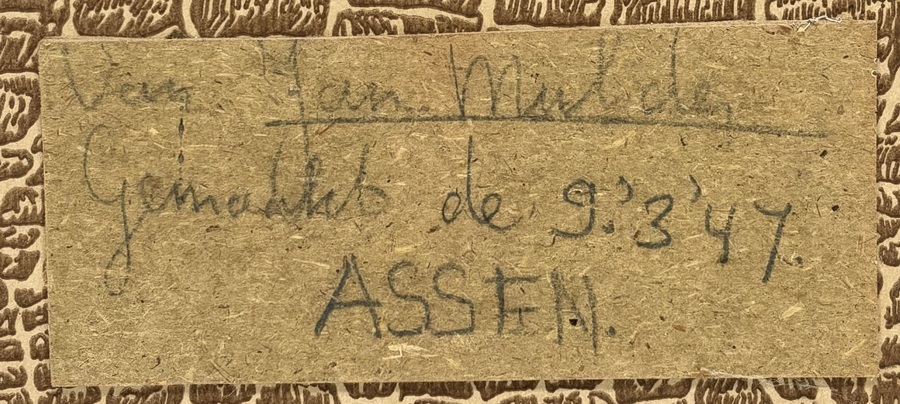 Van Jan Mulder
Gemaakt de 9.'3'47.
ASSEN.